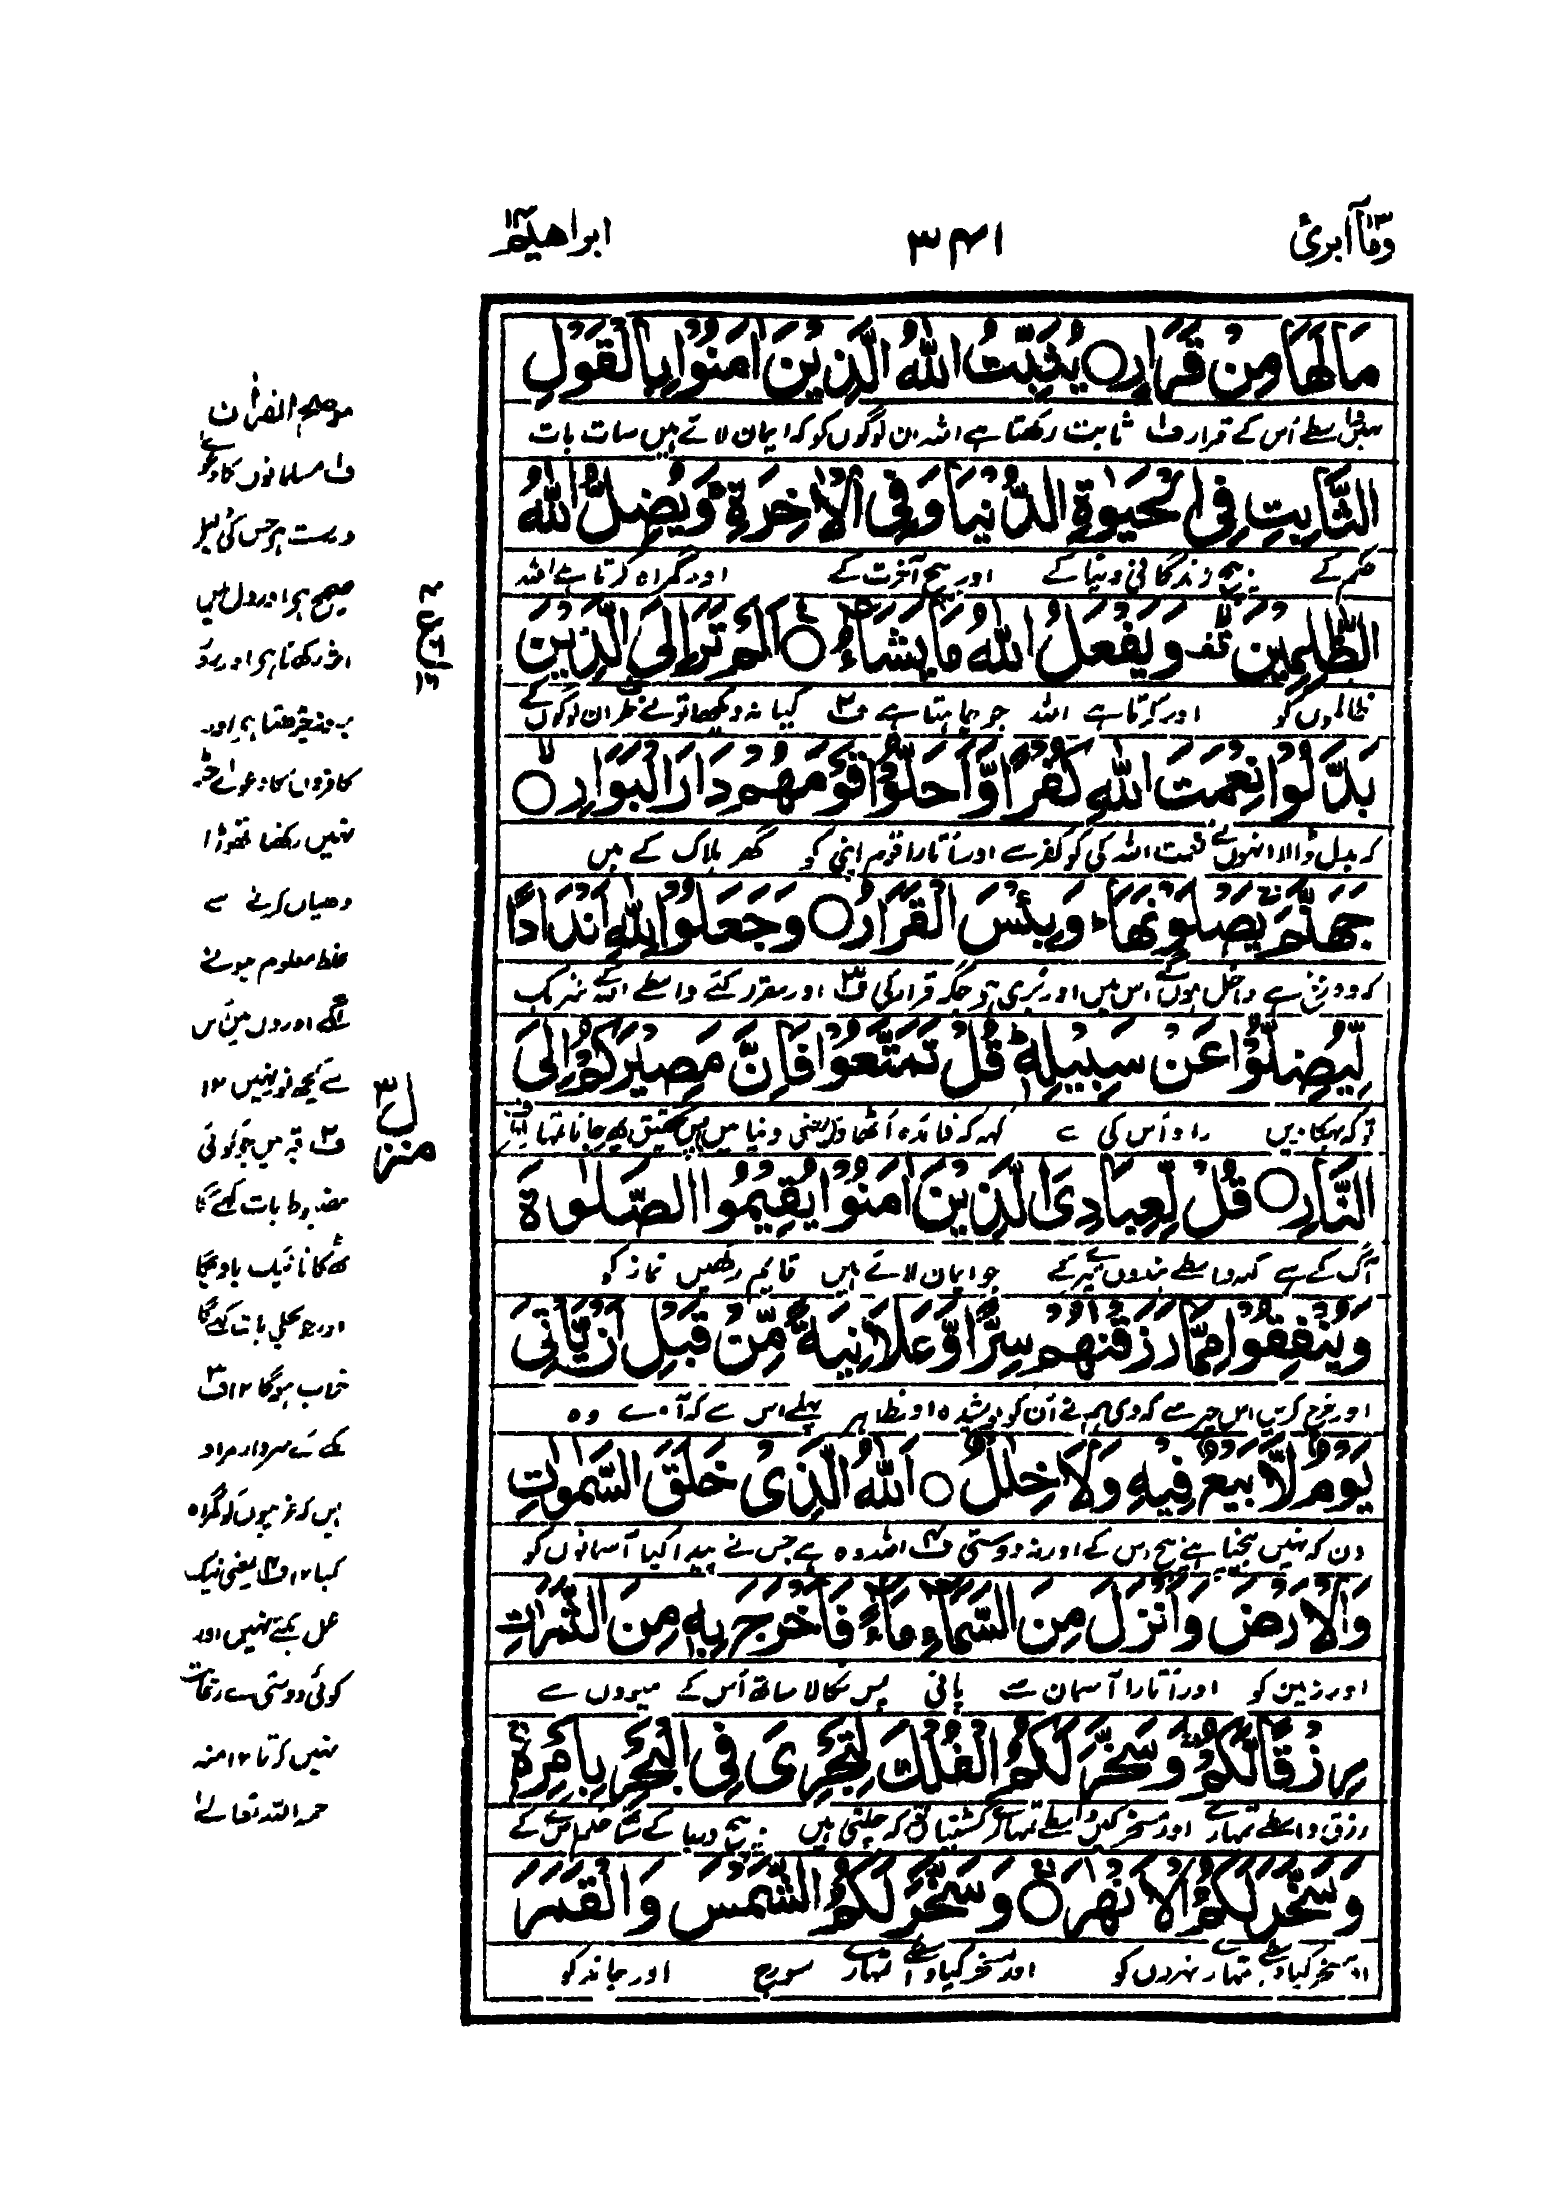 ومآ ابرئ ١٣
٣٤١
ابراهيم ١٤
مَا لَهَا مِنْ قَرَارٍ ○ يُثَبِّتُ اللّٰهُ الَّذِيْنَ اٰمَنُوْا بِالْقَوْلِ
نہیں واسطے اُس کے قرار ف۱ ثابت رکھتا ہے اللہ ان لوگوں کو کہ ایمان لائے ہیں سات بات
الثَّابِتِ فِى الْحَيٰوةِ الدُّنْيَا وَفِى الْاٰخِرَةِ ۚ وَيُضِلُّ اللّٰهُ
محکم کے بیچ زندگانی دنیا کے اور بیچ آخرت کے اور گمراہ کرتا ہے اللہ
الظّٰلِمِيْنَ ۙ وَيَفْعَلُ اللّٰهُ مَا يَشَآءُ ○ اَلَمْ تَرَ اِلَى الَّذِيْنَ
ظالموں کو اور کرتا ہے اللہ جو چاہتا ہے ف۲ کیا نہ دیکھا تو نے طرف ان لوگوں کے
بَدَّلُوْا نِعْمَتَ اللّٰهِ كُفْرًا وَّاَحَلُّوْا قَوْمَهُمْ دَارَ الْبَوَارِ ○
کہ بدل ڈالا انہوں نے نعمت اللہ کی کو کفر سے اور اُتارا قوم اپنی کو گھر ہلاک کے میں
جَهَنَّمَ ۚ يَصْلَوْنَهَا ؕ وَبِئْسَ الْقَرَارُ ○ وَجَعَلُوْا لِلّٰهِ اَنْدَادًا
کہ دوزخ ہے داخل ہوں گے اس میں اور بُری ہے جگہ قرار کی ف۳ اور مقرر کئے واسطے اللہ کے شریک
لِّيُضِلُّوْا عَنْ سَبِيْلِهٖ ؕ قُلْ تَمَتَّعُوْا فَاِنَّ مَصِيْرَكُمْ اِلَى
تو کہ بہکاویں راہ اُس کی سے کہہ کہ فائدہ اُٹھاؤ یعنی دنیا میں پس تحقیق پھر جانا تمہارا طرف
النَّارِ ○ قُلْ لِّعِبَادِىَ الَّذِيْنَ اٰمَنُوْا يُقِيْمُوا الصَّلٰوةَ
آگ کے ہے کہہ واسطے بندوں میرے کے جو ایمان لائے ہیں قایم رکھیں نماز کو
وَيُنْفِقُوْا مِمَّا رَزَقْنٰهُمْ سِرًّا وَّعَلَانِيَةً مِّنْ قَبْلِ اَنْ يَّاْتِىَ
اور خرچ کریں اس چیز سے کہ دی ہم نے اُن کو پوشیدہ اور ظاہر پہلے اس سے کہ آوے وہ
يَوْمٌ لَّا بَيْعٌ فِيْهِ وَلَا خِلٰلٌ ○ اَللّٰهُ الَّذِىْ خَلَقَ السَّمٰوٰتِ
دن کہ نہیں بیچنا ہے بیچ اس کے اور نہ دوستی ف۴ اللہ وہ ہے جس نے پیدا کیا آسمانوں کو
وَالْاَرْضَ وَاَنْزَلَ مِنَ السَّمَآءِ مَآءً فَاَخْرَجَ بِهٖ مِنَ الثَّمَرٰتِ
اور زمین کو اور اُتارا آسمان سے پانی پس نکالا ساتھ اُس کے میووں سے
رِزْقًا لَّكُمْ ۚ وَسَخَّرَ لَكُمُ الْفُلْكَ لِتَجْرِىَ فِى الْبَحْرِ بِاَمْرِهٖ ۚ
رزق واسطے تمہارے اور مسخر کیں واسطے تمہارے کشتیاں تو کہ چلتی ہیں بیچ دریا کے ساتھ حکم اُس کے
وَسَخَّرَ لَكُمُ الْاَنْهٰرَ ○ وَسَخَّرَ لَكُمُ الشَّمْسَ وَالْقَمَرَ
اور مسخر کیا واسطے تمہارے نہروں کو اور مسخر کیا واسطے تمہارے سورج اور چاند کو
موضح القرآن
ف۱ مسلمانوں کا دعویٰ
درست ہے جس کی دلیل
صحیح ہے اور دل میں
اثر رکھتا ہے اور روز
بروز چڑھتا ہے اور
کافروں کا دعویٰ جڑ
نہیں رکھتا تھوڑا
دھیان کرنے سے
غلط معلوم ہونے
لگے اور دل میں اُس
سے کچھ نور نہیں ۱۲
ف۲ قبر میں جو کوئی
مضبوط بات کہے گا
ٹھکانا نیک پاوے گا
اور جو بچلی بات کہے گا
خراب ہوگا ۱۲ ف۳
مکے کے سردار مراد
ہیں کہ غریبوں کو گمراہ
کیا ۱۲ ف۴ یعنی نیک
عمل بکتے نہیں اور
کوئی دوستی سے رعایت
نہیں کرتا ۱۲ منہ
رحمہ اللہ تعالےٰ
ع
١٦
منزل ٣